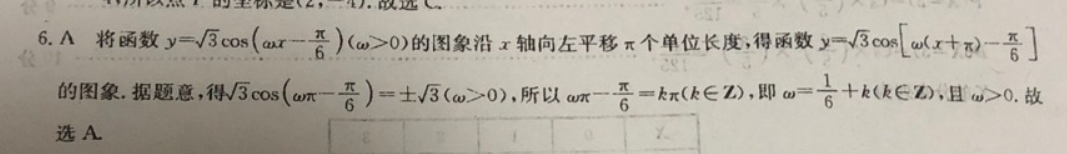 标是(2，-4).故选C.
6. A 将函数 y=√3cos(ωx-π/6)(ω>0)的图象沿 x 轴向左平移 π 个单位长度,得函数 y=√3cos[ω(x+π)-π/6]
的图象.据题意,得√3cos(ωπ-π/6)=±√3(ω>0),所以 ωπ-π/6=kπ(k∈Z),即 ω=1/6+k(k∈Z),且 ω>0.故
选 A.